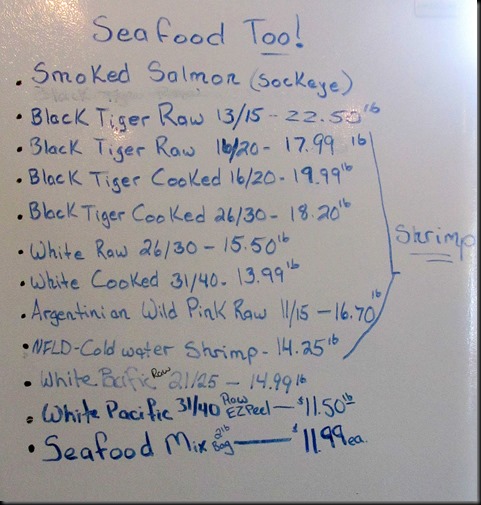 Seafood Too!
• Smoked Salmon (Sockeye)
• Black Tiger Raw 13/15 - 22.50 lb
• Black Tiger Raw 16/20 - 17.99 lb
• Black Tiger Cooked 16/20 - 19.99 lb
• Black Tiger Cooked 26/30 - 18.20 lb
• White Raw 26/30 - 15.50 lb
Shrimp
• White Cooked 31/40 - 13.99 lb
• Argentinian Wild Pink Raw 11/15 - 16.70 lb
• NFLD-Cold water Shrimp - 14.25 lb
• White Pacific Raw 21/25 - 14.99 lb
• White Pacific 31/40 Raw EZ Peel — $11.50 lb
• Seafood Mix 2lb Bag — $11.99 ea.